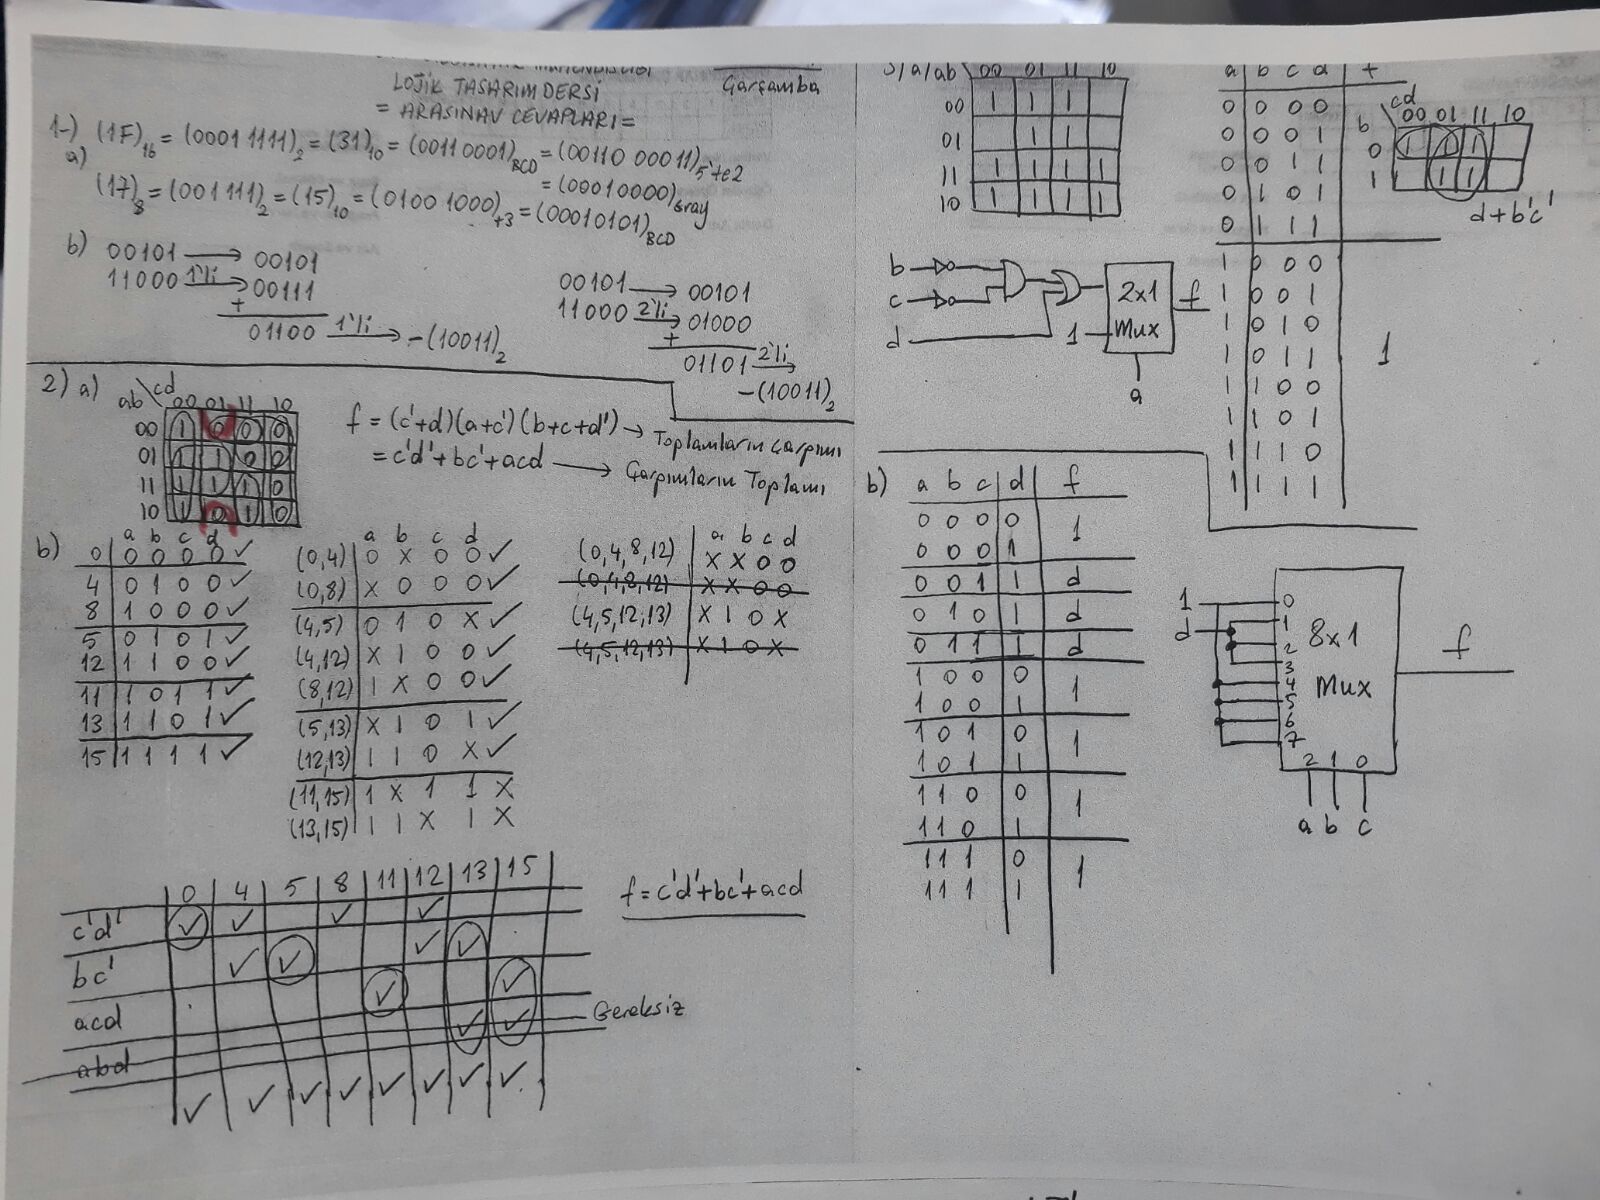 LOJİK TASARIM DERSİ
Çarşamba
= ARASINAV CEVAPLARI =
1-) a) (1F)16 = (0001 1111)2 = (31)10 = (0011 0001)BCD = (00110 00011)5'te2
= (00010000)Gray
(17)8 = (001 111)2 = (15)10 = (0100 1000)+3 = (00010101)BCD
b) 00101 → 00101
11000 1'li → 00111
+
01100 1'li → -(10011)2
00101 → 00101
11000 2'li → 01000
+
01101 2'li →
-(10011)2
2) a) ab \ cd 00 01 11 10
00 1 0 0 0
01 1 1 0 0
11 1 1 1 0
10 1 0 1 0
f = (c'+d)(a+c')(b+c+d') → Toplamların Çarpımı
= c'd'+bc'+acd → Çarpımların Toplamı
b) a b c d
0 0 0 0 0 ✓
4 0 1 0 0 ✓
8 1 0 0 0 ✓
5 0 1 0 1 ✓
12 1 1 0 0 ✓
11 1 0 1 1 ✓
13 1 1 0 1 ✓
15 1 1 1 1 ✓
a b c d
(0,4) 0 X 0 0 ✓
(0,8) X 0 0 0 ✓
(4,5) 0 1 0 X ✓
(4,12) X 1 0 0 ✓
(8,12) 1 X 0 0 ✓
(5,13) X 1 0 1 ✓
(12,13) 1 1 0 X ✓
(11,15) 1 X 1 1 X
(13,15) 1 1 X 1 X
a b c d
(0,4,8,12) X X 0 0
(0,4,8,12) X X 0 0
(4,5,12,13) X 1 0 X
(4,5,12,13) X 1 0 X
0 4 5 8 11 12 13 15
c'd' ✓ ✓ ✓ ✓
bc' ✓ ✓ ✓ ✓
acd ✓ ✓
abd ✓ ✓ Gereksiz
✓ ✓ ✓ ✓ ✓ ✓ ✓ ✓
f = c'd'+bc'+acd
3) a) ab \ 00 01 11 10
00 1 1 1
01 1 1
11 1 1 1 1
10 1 1 1 1
a b c d f
0 0 0 0
0 0 0 1
0 0 1 1
0 1 0 1
0 1 1 1
1 0 0 0
1 0 0 1
1 0 1 0
1 0 1 1
1 1 0 0
1 1 0 1
1 1 1 0
1 1 1 1
1
b \ cd 00 01 11 10
0 1 1 1
1 1 1
d+b'c'
b
c
d
1
2x1
Mux
f
a
b) a b c d f
0 0 0 0
0 0 0 1
1
0 0 1 1 d
0 1 0 1 d
0 1 1 1 d
1 0 0 0
1 0 0 1
1
1 0 1 0
1 0 1 1
1
1 1 0 0
1 1 0 1
1
1 1 1 0
1 1 1 1
1
1
d
0
1
2
3
4
5
6
7
8x1
Mux
f
2 1 0
a b c